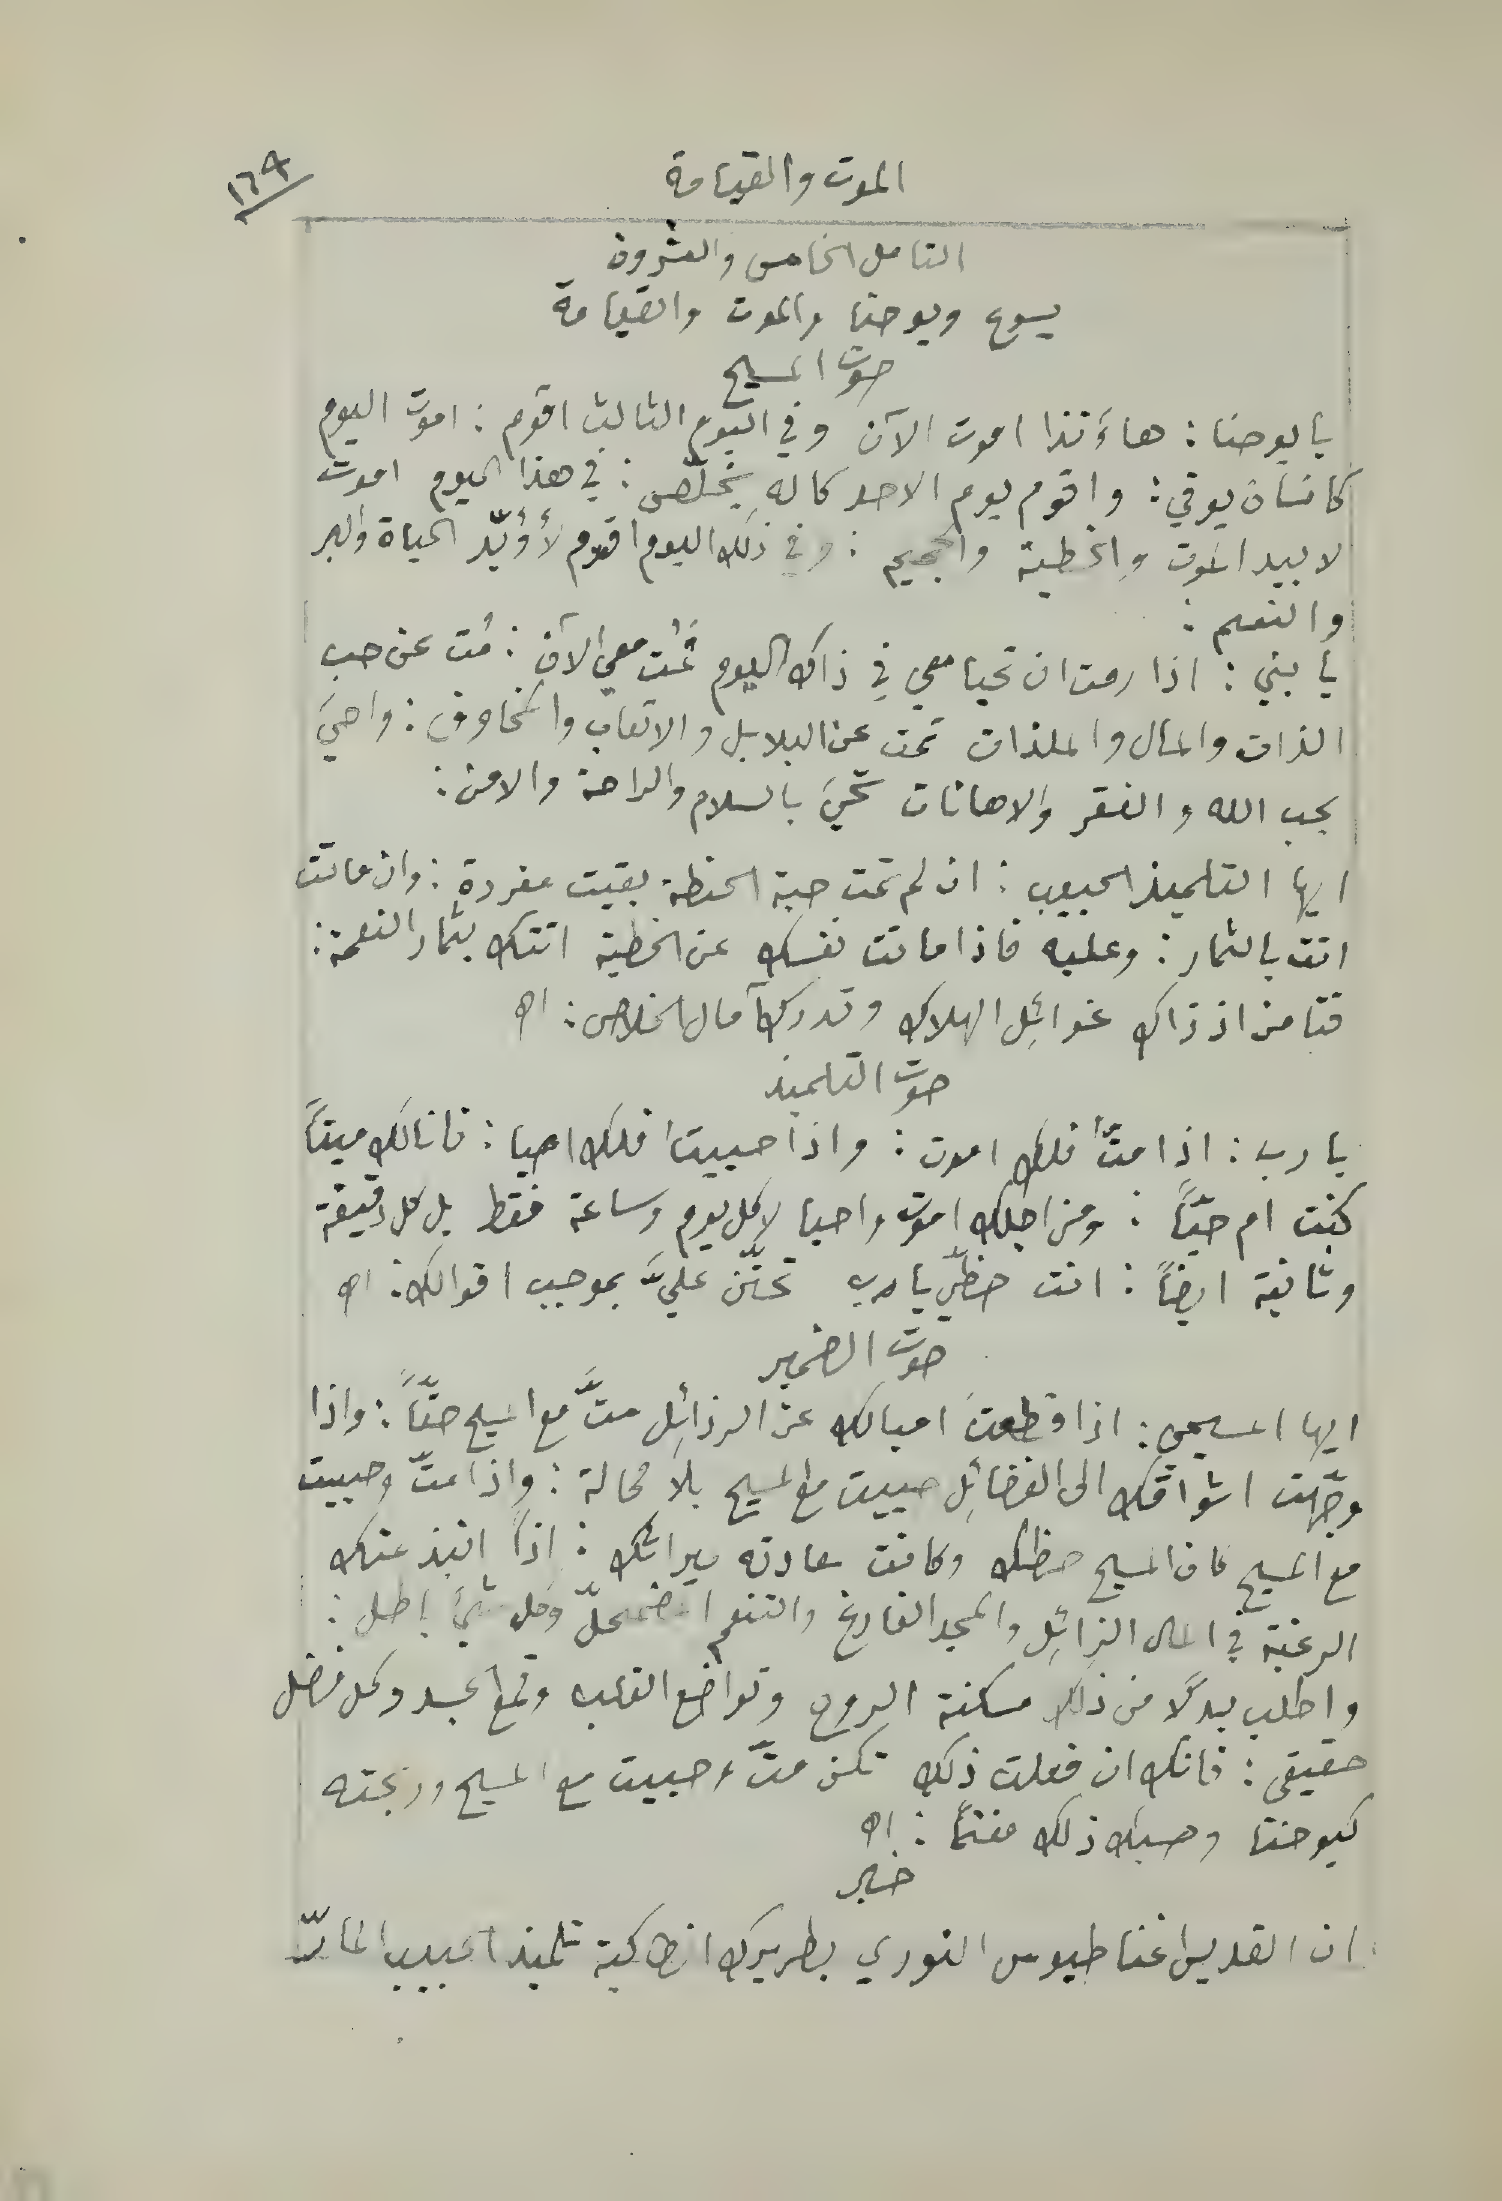 الموت والقيامة
١٦٩
التامل الخامس والعشرون
يسوع ويوحنا والموت والقيامة
صوت المسيح
يا يوحنا : هاءَنذا اموت الآن وفي اليوم الثالث اقوم : اموت اليوم
كانسان يوفي : واقوم يوم الاحد كاله يخلّص : في هذا اليوم اموت
لابيد الموت والخطية والجحيم : وفي ذلك اليوم اقوم لأُؤيّد الحياة والبر
والنعيم :
يا بني : اذا رمت ان تحيا معي في ذاك اليوم فمُت معي الآن : مُت عن حب
الذات والمال والملذات تمت عن البلابل والاتعاب والمخاوف : واحيَ
بحب الله والفقر والاهانات تحيَ بالسلام والراحة والامن :
ايها التلميذ الحبيب : ان لم تمت حبة الحنطة بقيت مفردة : وان ماتت
اتت بالثمار : وعليه فاذا ماتت نفسك عن الخطية اتتك بثمار النعمة :
فتامن اذ ذاك غوائِل الهلاك وتدرك آمال الخلاص : اه
صوت التلميذ
يا رب : اذا متُّ فلك اموت : واذا حييتُ فلك احيا : فانا لك ميتاً
كنت ام حيّاً : ومن اجلك اموت واحيا لا كل يوم وساعة فقط بل كل دقيقة
وثانية ايضاً : انت حظّي يا رب تحنّن عليَّ بموجب اقوالك : اه
صوت الضمير
ايها المسيحي : اذا قطعتَ اميالك عن الرذائِل متَّ مع المسيح حقّاً : واذا
وجّهت اشواقك الى الفضائِل حييت مع المسيح بلا محالة : واذا متّ وحييت
مع المسيح كان المسيح حظك وكانت سعادته ميراثك : اذاً انبذ عنك
الرغبة في المال الزائِل والمجد الفارغ والتنعم المضمحلّ وكل شيءٍ باطل :
واطلب بدلًا من ذلك مسكنة الروح وتواضع القلب وقمع الجسد وكل فضل
حقيقي : فانك ان فعلت ذلك تكن متّ وحييت مع المسيح وربحته
كيوحنا وحسبك ذلك مغنماً : اه
خبر
ان القديس اغناطيوس النوري بطريرك انطاكية تلميذ الحبيب